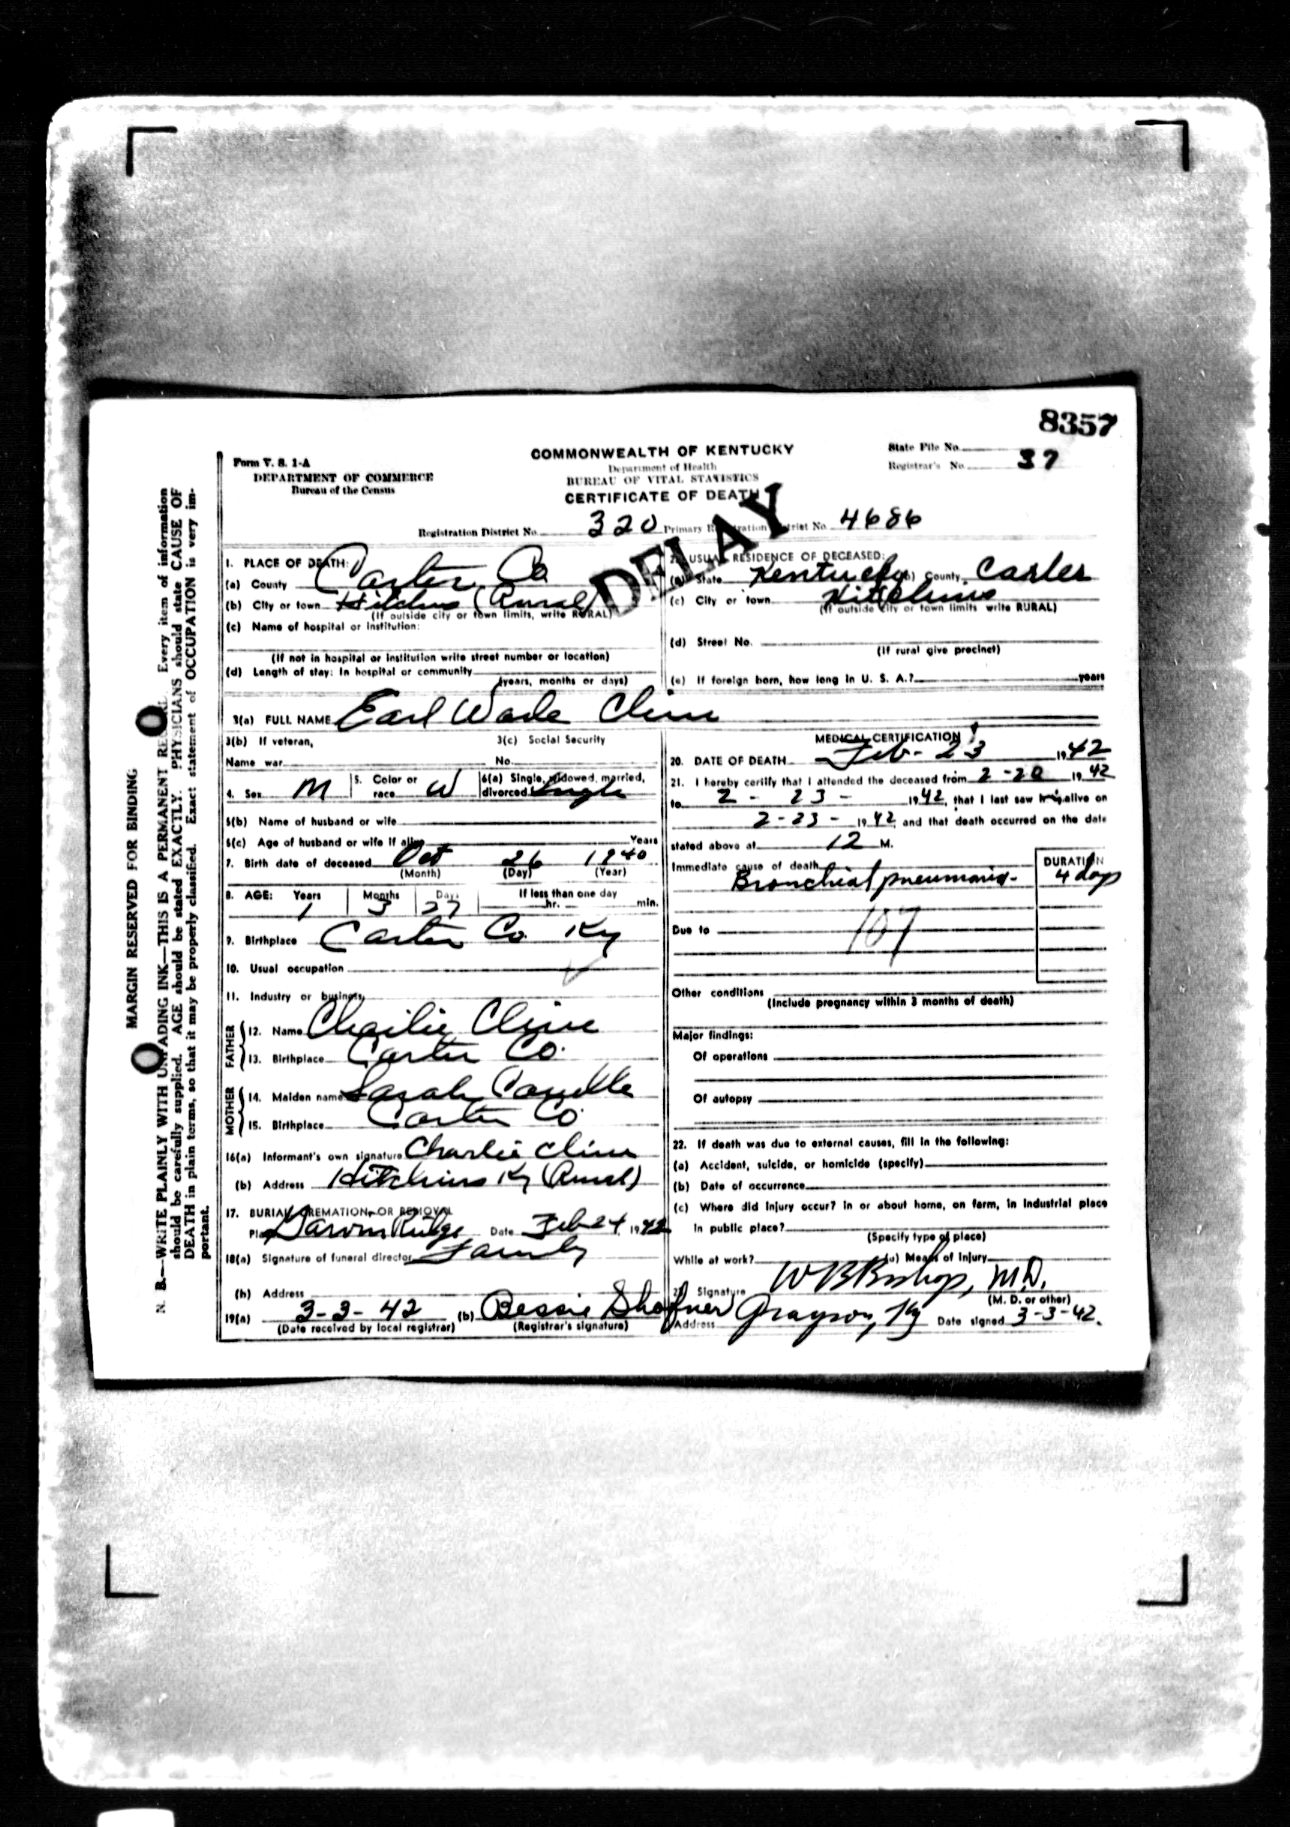 8357
Form V. S. 1-A
DEPARTMENT OF COMMERCE
Bureau of the Census
COMMONWEALTH OF KENTUCKY
Department of Health
BUREAU OF VITAL STATISTICS
CERTIFICATE OF DEATH
State File No.
Registrar's No. 37
Registration District No. 320 Primary Registration District No. 4686
DELAY
1. PLACE OF DEATH:
(a) County Carter Co
(b) City or town Hitchins (Rural)
(If outside city or town limits, write RURAL)
(c) Name of hospital or institution:
(If not in hospital or institution write street number or location)
(d) Length of stay: In hospital or community
(years, months or days)
2. USUAL RESIDENCE OF DECEASED:
(a) State Kentucky (b) County Carter
(c) City or town Hitchins
(If outside city or town limits write RURAL)
(d) Street No.
(If rural give precinct)
(e) If foreign born, how long in U. S. A.? years
3(a) FULL NAME Earl Wade Cline
3(b) If veteran,
Name war
3(c) Social Security
No.
4. Sex M 5. Color or race W 6(a) Single, widowed, married, divorced Single
6(b) Name of husband or wife
6(c) Age of husband or wife if alive Years
7. Birth date of deceased Oct 26 1940
(Month) (Day) (Year)
8. AGE: Years Months Days If less than one day
1 3 27 hr. min.
9. Birthplace Carter Co Ky
10. Usual occupation
11. Industry or business
FATHER
12. Name Charlie Cline
13. Birthplace Carter Co.
MOTHER
14. Maiden name Sarah
15. Birthplace Carter Co
16(a) Informant's own signature Charlie Cline
(b) Address Hitchins Ky (Rural)
17. BURIAL, CREMATION, OR REMOVAL
Place Garvin Ridge Date Feb 24 1942
18(a) Signature of funeral director Family
(b) Address
19(a) 3-3-42 (b) Bessie Shafner
(Date received by local registrar) (Registrar's signature)
MEDICAL CERTIFICATION
20. DATE OF DEATH Feb - 23 1942
21. I hereby certify that I attended the deceased from 2-20 1942
to 2-23- 1942, that I last saw him alive on
2-23- 1942 and that death occurred on the date
stated above at 12 M.
Immediate cause of death DURATION
Bronchial pneumonia- 4 days
Due to 107
Other conditions
(Include pregnancy within 3 months of death)
Major findings:
Of operations
Of autopsy
22. If death was due to external causes, fill in the following:
(a) Accident, suicide, or homicide (specify)
(b) Date of occurrence
(c) Where did injury occur? in or about home, on farm, in industrial place
in public place?
(Specify type of place)
While at work? (e) Means of injury
23. Signature W B Bishop, M.D.
(M. D. or other)
Address Grayson, Ky Date signed 3-3-42.
MARGIN RESERVED FOR BINDING
N. B.—WRITE PLAINLY WITH UNFADING INK—THIS IS A PERMANENT RECORD. Every item of information
should be carefully supplied. AGE should be stated EXACTLY. PHYSICIANS should state CAUSE OF
DEATH in plain terms, so that it may be properly classified. Exact statement of OCCUPATION is very im-
portant.